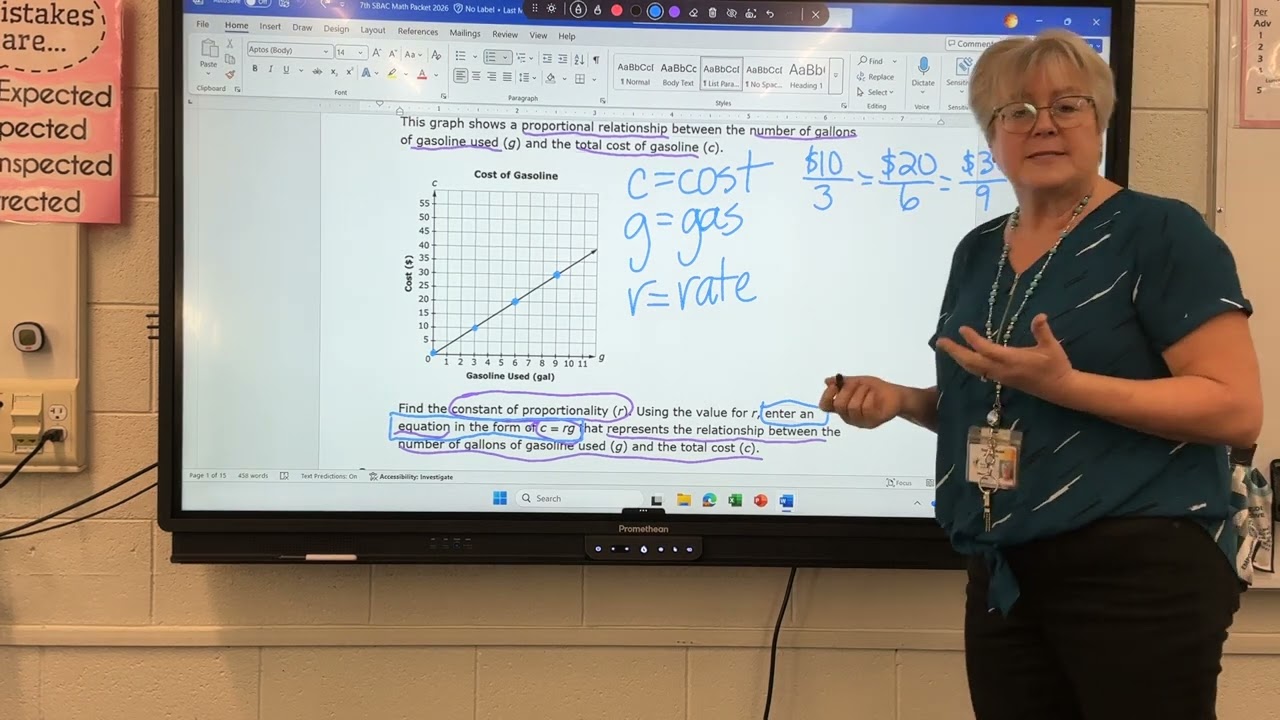 istakes
are...
Expected
pected
nspected
rrected
7th SBAC Math Packet 2026
No Label
File Home Insert Draw Design Layout References Mailings Review View Help
Comments
Paste
Clipboard
Aptos (Body) 14
Font
Paragraph
AaBbCcI AaBbCc AaBbCcI AaBbCcI AaBb(
1 Normal Body Text 1 List Para... 1 No Spac... Heading 1
Styles
Find
Replace
Select
Editing
Dictate
Voice
This graph shows a proportional relationship between the number of gallons
of gasoline used (g) and the total cost of gasoline (c).
Cost of Gasoline
c
55
50
45
40
35
30
25
20
15
10
5
0 1 2 3 4 5 6 7 8 9 10 11 g
Cost ($)
Gasoline Used (gal)
c=cost
g=gas
r=rate
$10 = $20 =
3 6 9
Find the constant of proportionality (r). Using the value for r, enter an
equation in the form of c = rg that represents the relationship between the
number of gallons of gasoline used (g) and the total cost (c).
Page 1 of 15 458 words Text Predictions: On Accessibility: Investigate Focus
Search
Promethean
Per
Adv
1
2
3
5